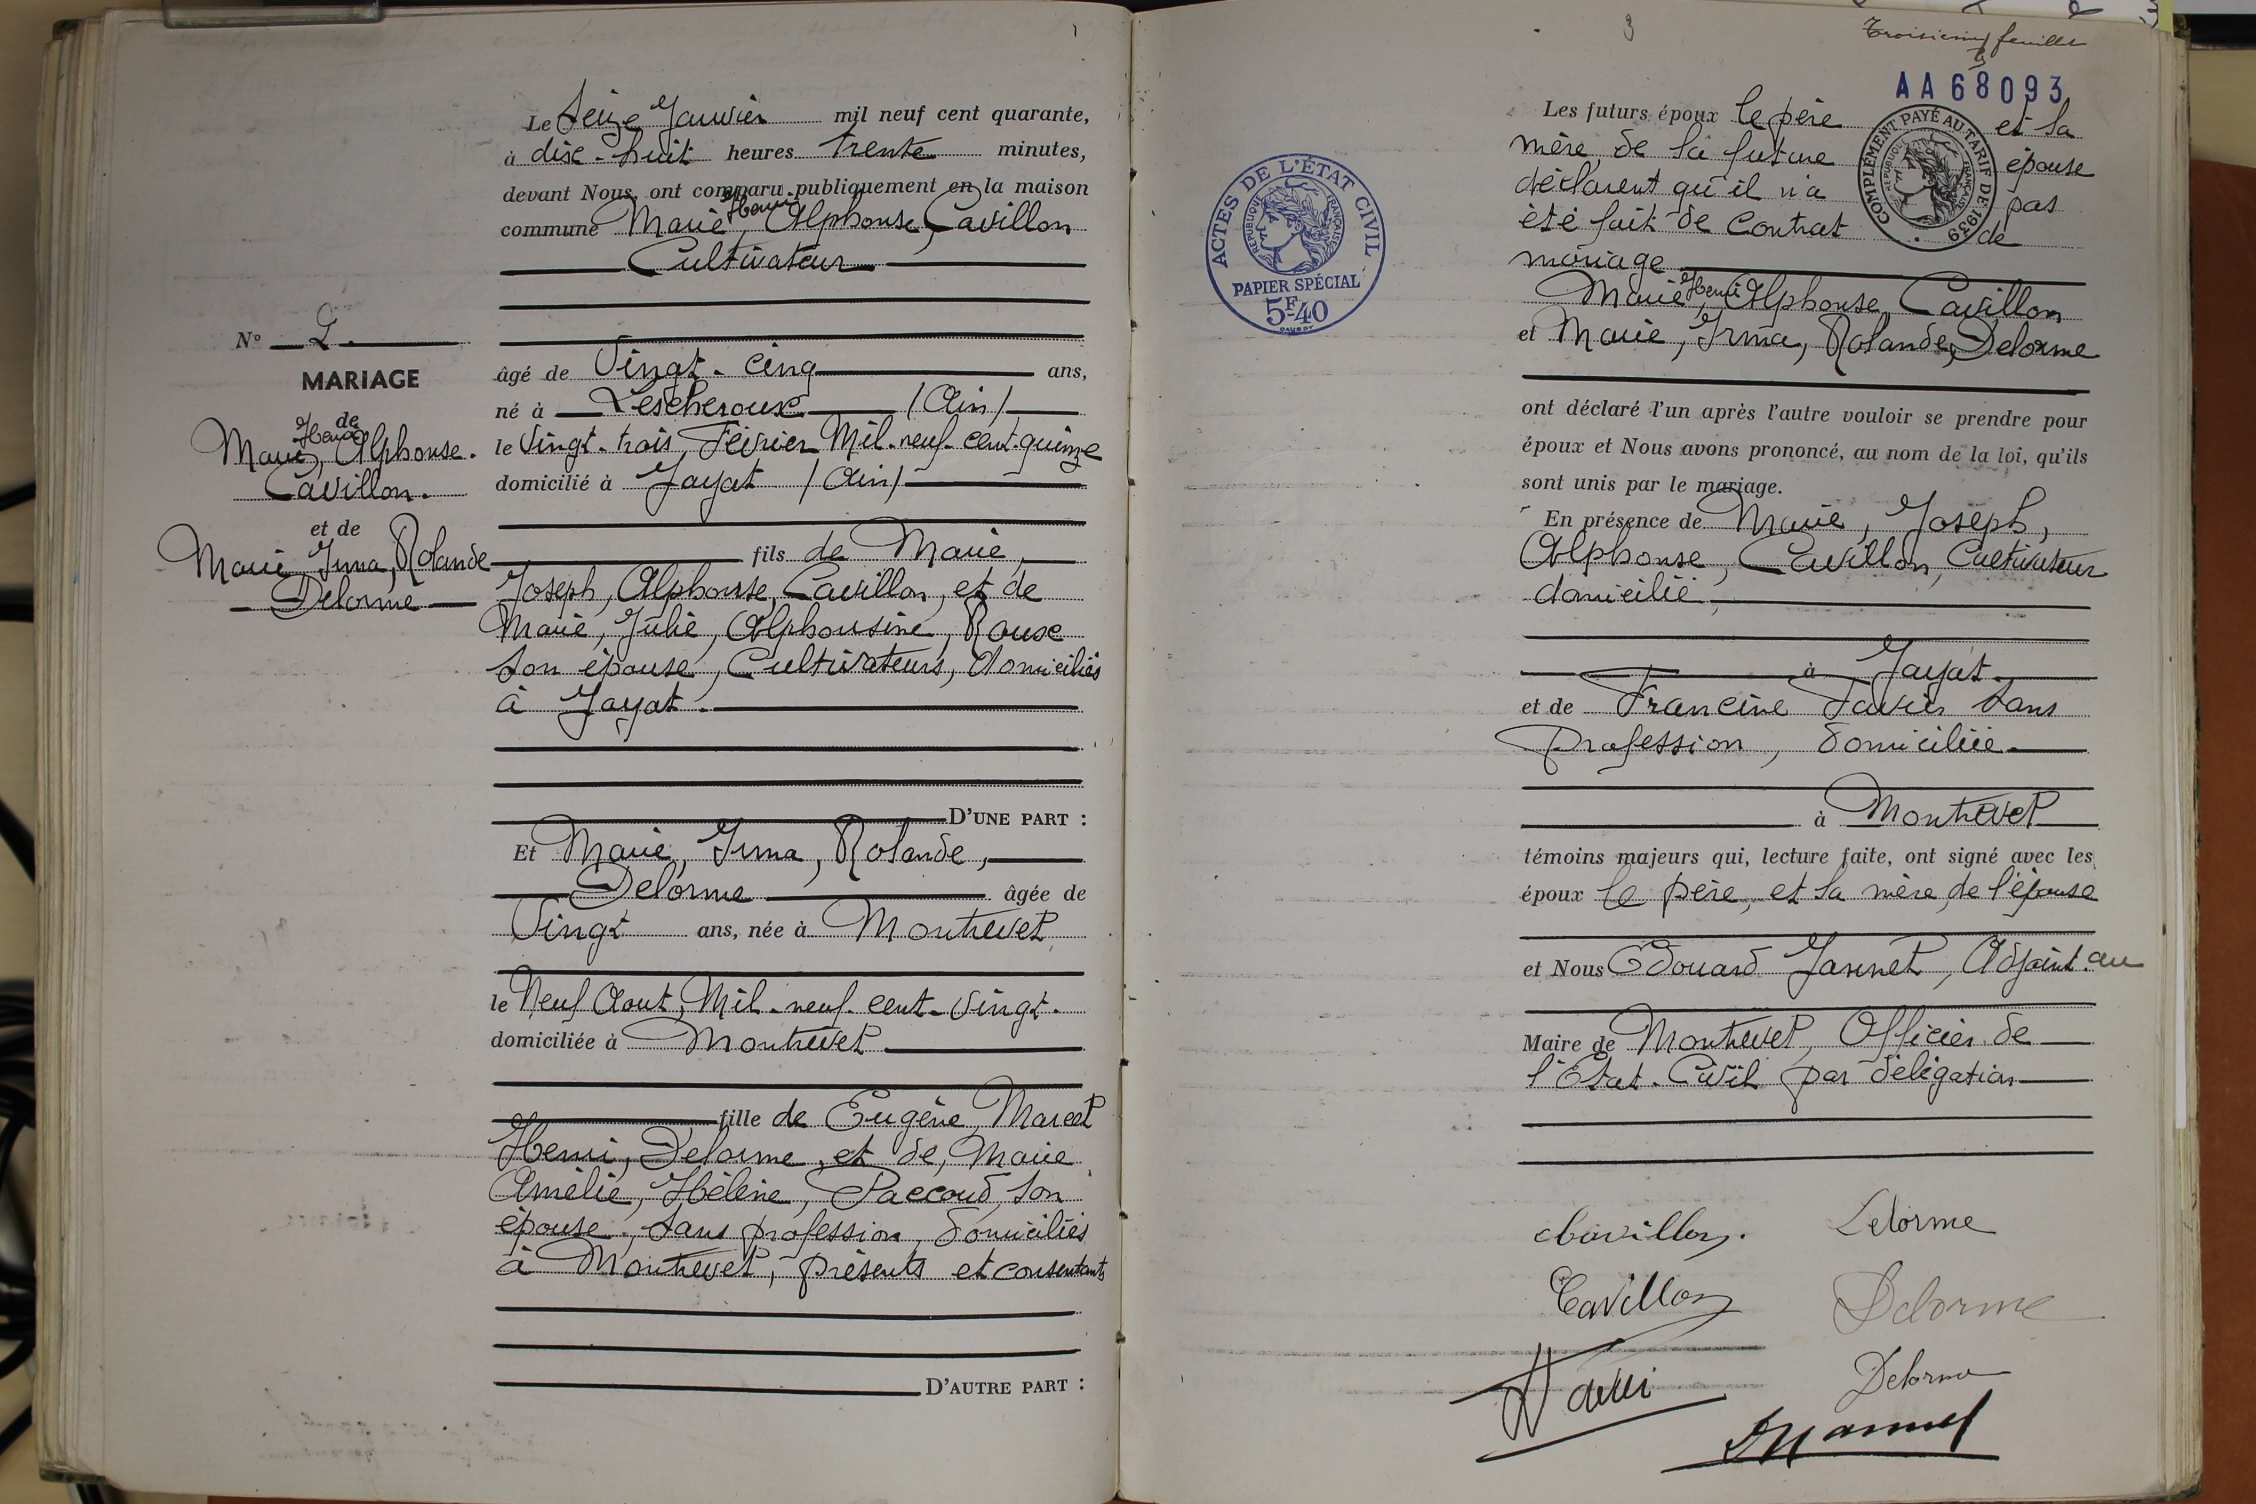 Le Seize Janvier mil neuf cent quarante,
à dix-huit heures trente minutes,
devant Nous, ont comparu publiquement en la maison
commune Marie, Henri, Alphonse, Cavillon
Cultivateur
N° 2.
MARIAGE
de
Marie, Henri, Alphonse.
Cavillon.
et de
Marie, Irma, Rolande
Delorme
âgé de Vingt-cinq ans,
né à Lescheroux (Ain)
le Vingt-trois Février Mil-neuf-cent-quinze
domicilié à Jayat (Ain)
fils de Marie,
Joseph, Alphonse, Cavillon, et de
Marie, Julie, Alphonsine, Roux
son épouse, Cultivateurs, domiciliés
à Jayat.
D'UNE PART :
Et Marie, Irma, Rolande,
Delorme âgée de
Vingt ans, née à Montrevel
le Neuf Aout, Mil-neuf-cent-vingt.
domiciliée à Montrevel
fille de Eugène, Marcel
Henri, Delorme, et de, Marie
Amélie, Hélène, Paccoud, son
épouse, sans profession, domiciliés
à Montrevel, présents et consentants
D'AUTRE PART :
3
Troisième feuille
AA68093
ACTES DE L'ÉTAT CIVIL
RÉPUBLIQUE FRANÇAISE
PAPIER SPÉCIAL
5F40
COMPLÉMENT PAYÉ AU TARIF DE 1939
RÉPUBLIQUE FRANÇAISE
Les futurs époux le père et la
mère, de la future épouse
déclarent qu'il n'a pas
été fait de contrat de
mariage
Marie, Henri, Alphonse, Cavillon
et Marie, Irma, Rolande, Delorme
ont déclaré l'un après l'autre vouloir se prendre pour
époux et Nous avons prononcé, au nom de la loi, qu'ils
sont unis par le mariage.
En présence de Marie, Joseph,
Alphonse, Cavillon, Cultivateur
domicilié,
à Jayat.
et de Francine Favier sans
profession, domiciliée
à Montrevel
témoins majeurs qui, lecture faite, ont signé avec les
époux le père, et la mère, de l'épouse
et Nous Edouard Janinet, Adjoint au
Maire de Montrevel, Officier de
l'Etat-Civil par délégation
Cavillon. Delorme
Cavillon Delorme
Delorme